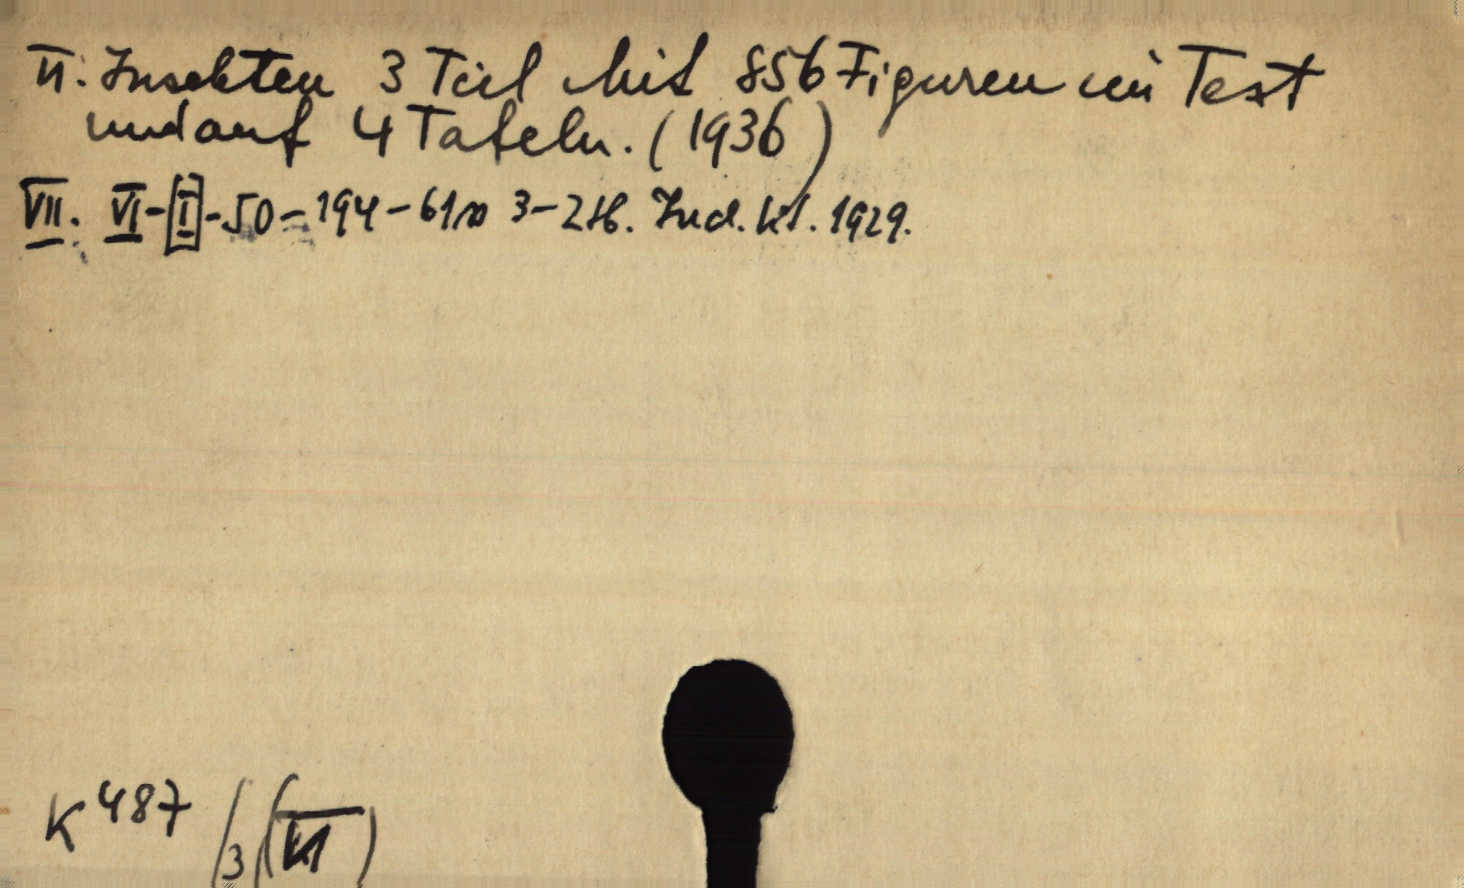 II. Insekten 3 Teil Mit 856 Figuren im Text
und auf 4 Tafeln. (1936)
VII. VI-[I]-50-194-61 3-2 Ind. kl. 1929.
K 487 /3 (VI)